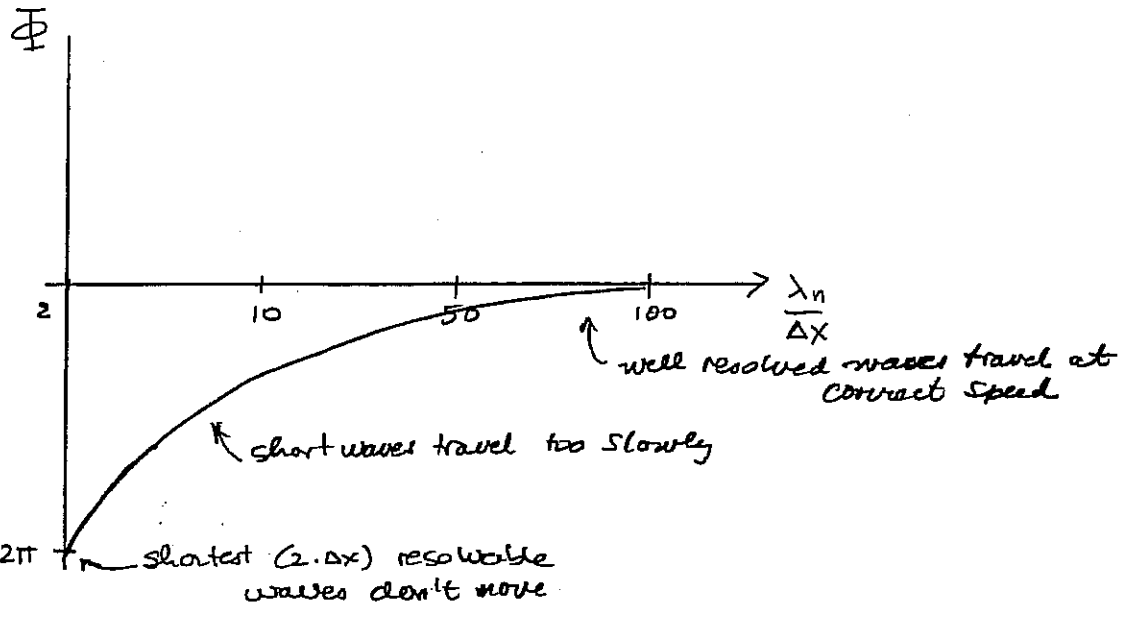 Φ
2
10
50
100
λn
Δx
well resolved waves travel at
correct speed
short waves travel too slowly
2π
shortest (2.Δx) resolvable
waves don't move